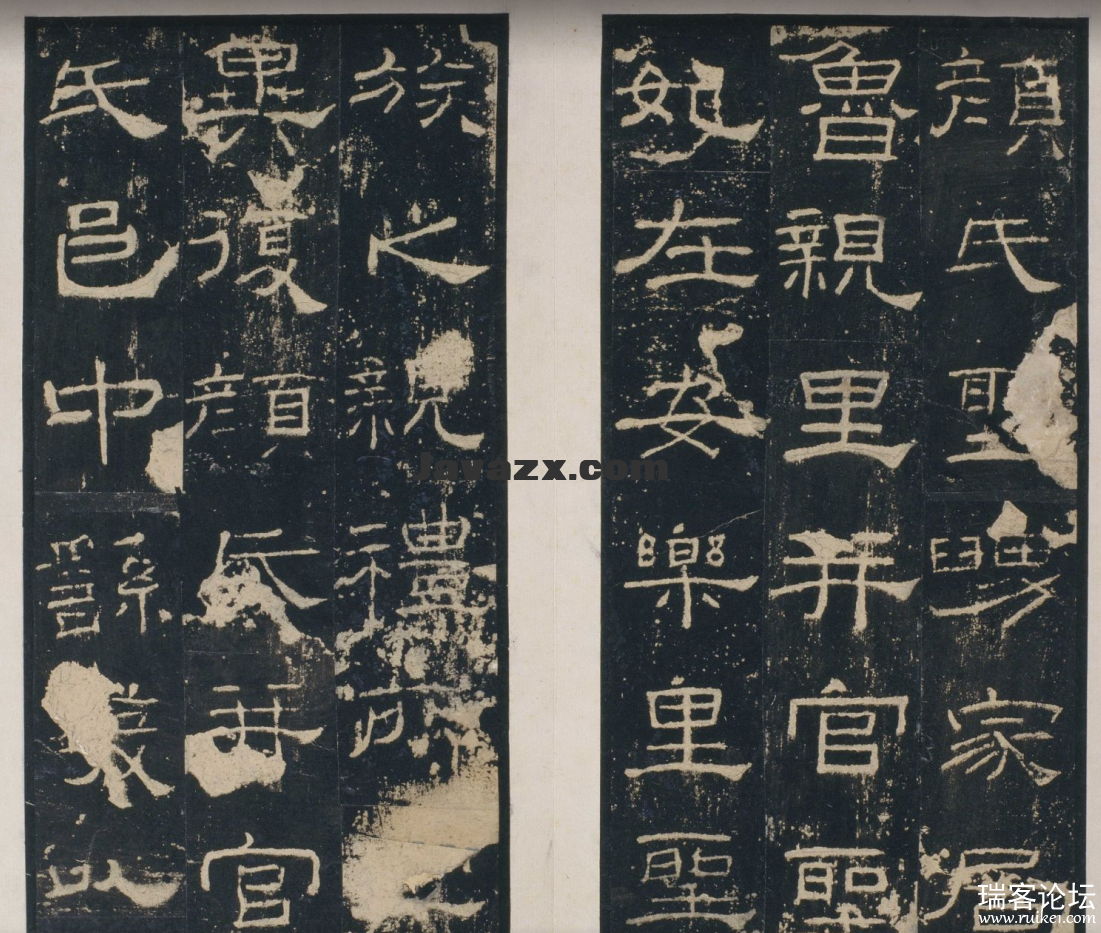 顏氏聖舅家居
魯親里并官聖
妃在安樂里聖
族之親禮所
異復顏氏并官
氏邑中繇發以
Javazx.com
瑞客论坛
www.ruike1.com